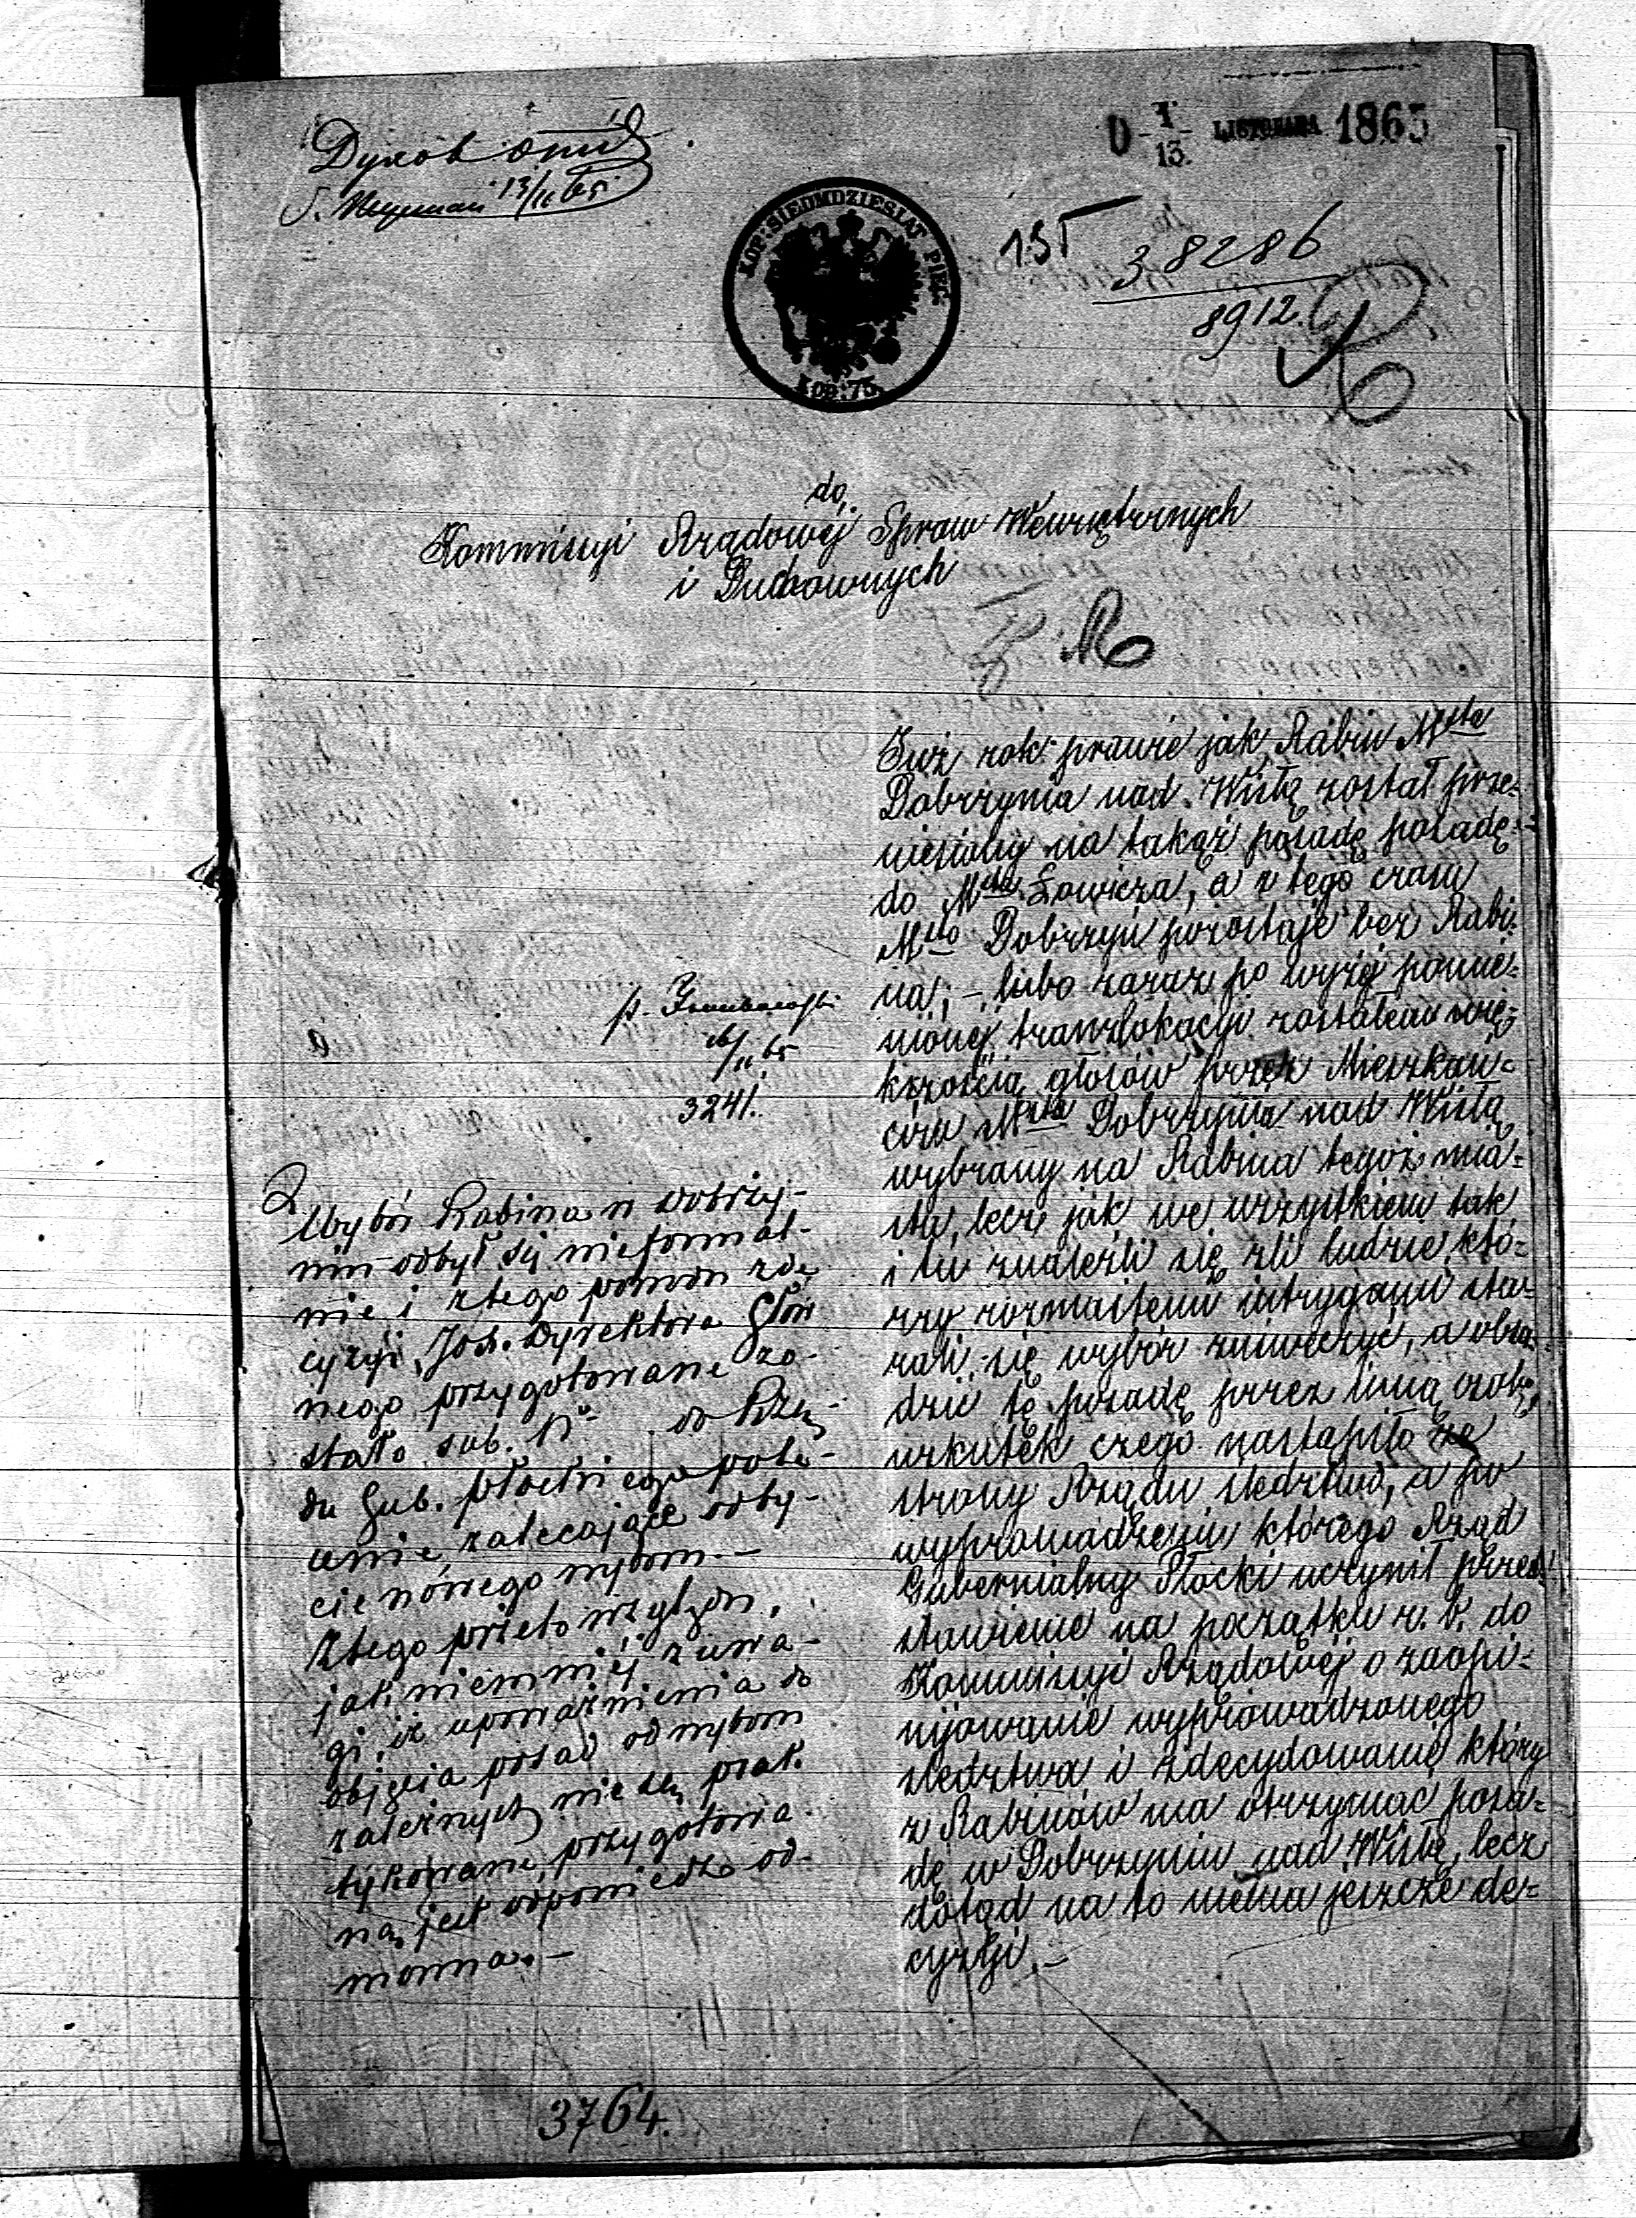 D 1/13 LISTOPADA 1865
13/11 65
KOP: SIEDMDZIESIĄT PIĘĆ
KOP: 75.
38286
8912.
do
Kommissyi Rządowéj Spraw Wewnętrznych
i Duchownych
Już rok prawie jak Rabin Msta
Dobrzynia nad Wisłą został prze=
niesiony na takąż posadę posadę
do Msta Łowicza, a z tego czasu
Msto Dobrzyń pozostaje bez Rabi=
na; – lubo zaraz po wyżéj pomie=
nionéj translokacyi zostałem wię=
kszością głosów przez Mieszkań=
ców Msta Dobrzynia nad Wisłą
wybrany na Rabina tegoż mia=
sta, lecz jak we wszystkiem tak
i tu znaleźli się źli ludzie któ=
rzy rozmaitemi intrygami sta=
rali się wybór zniweczyć, a obsa=
dzić tę posadę przez inną osobę,
wskutek czego nastąpiło ze
strony Rządu śledztwo, a po
wyprowadzeniu którego Rząd
Gubernialny Płocki uczynił przed=
stawienie na początku r. b. do
Kommissyi Rządowéj o zaopi=
nijowanie wyprowadzonego
śledztwa i zdecydowanie który
z Rabinów ma otrzymać posa=
dę w Dobrzyniu nad Wisłą, lecz
dotąd na to niema jeszcze de=
cyzyi. –
16/11 65
3241.
Wybór Rabina w Dobrzy-
niu odbył się nieformal-
nie i z tego powodu z de
cyzyi, Dyrektora Głów
nego przygotowane zo-
stało sub. No do Rzą-
du Gub. Płockiego pole-
cenie, zalecające odby-
cie nowego wyboru. –
Z tego przeto względu,
jak niemniéj z uwa-
gi, iż upoważnienia do
objęcia posad od wyboru
zależnych nie są prak.
tykowane, przygotowa.
na jest odpowiedź od-
mowna. –
3764.